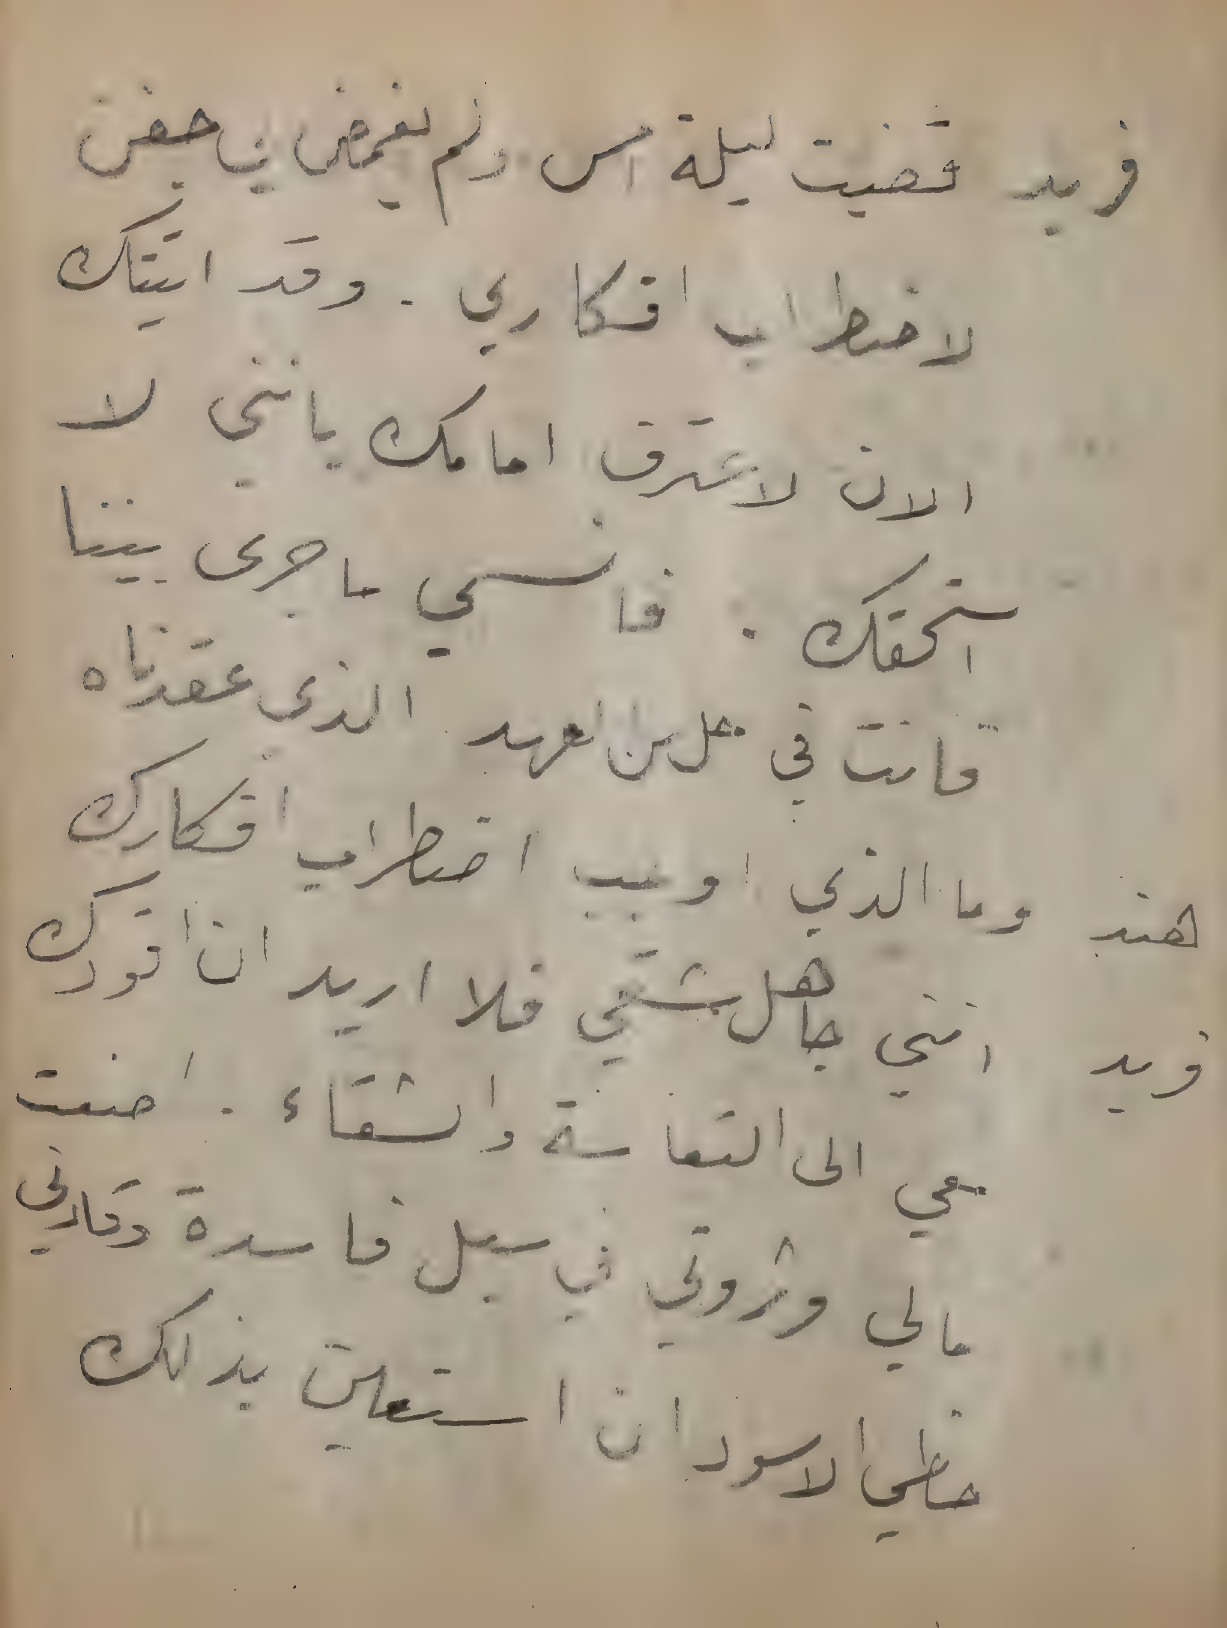 فريد قضيت ليلة امس ولم يغمض لي جفن
لاضطراب افكاري . وقد اتيتك
الان لاعترف امامك بانني لا
استحقك . فانسي ما جرى بيننا
فانت في حل من العهد الذي عقدناه
هند وما الذي اوجب اضطراب افكارك
فريد انني جاهل شقي فلا اريد ان اقودك
معي الى التعاسة والشقاء . اضعت
مالي وثروتي في سبل فاسدة وقادني
حظي الاسود ان استعين بذلك